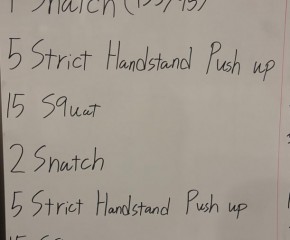 1 Snatch (135/95)
5 Strict Handstand Push up
15 Squat
2 Snatch
5 Strict Handstand Push up
15